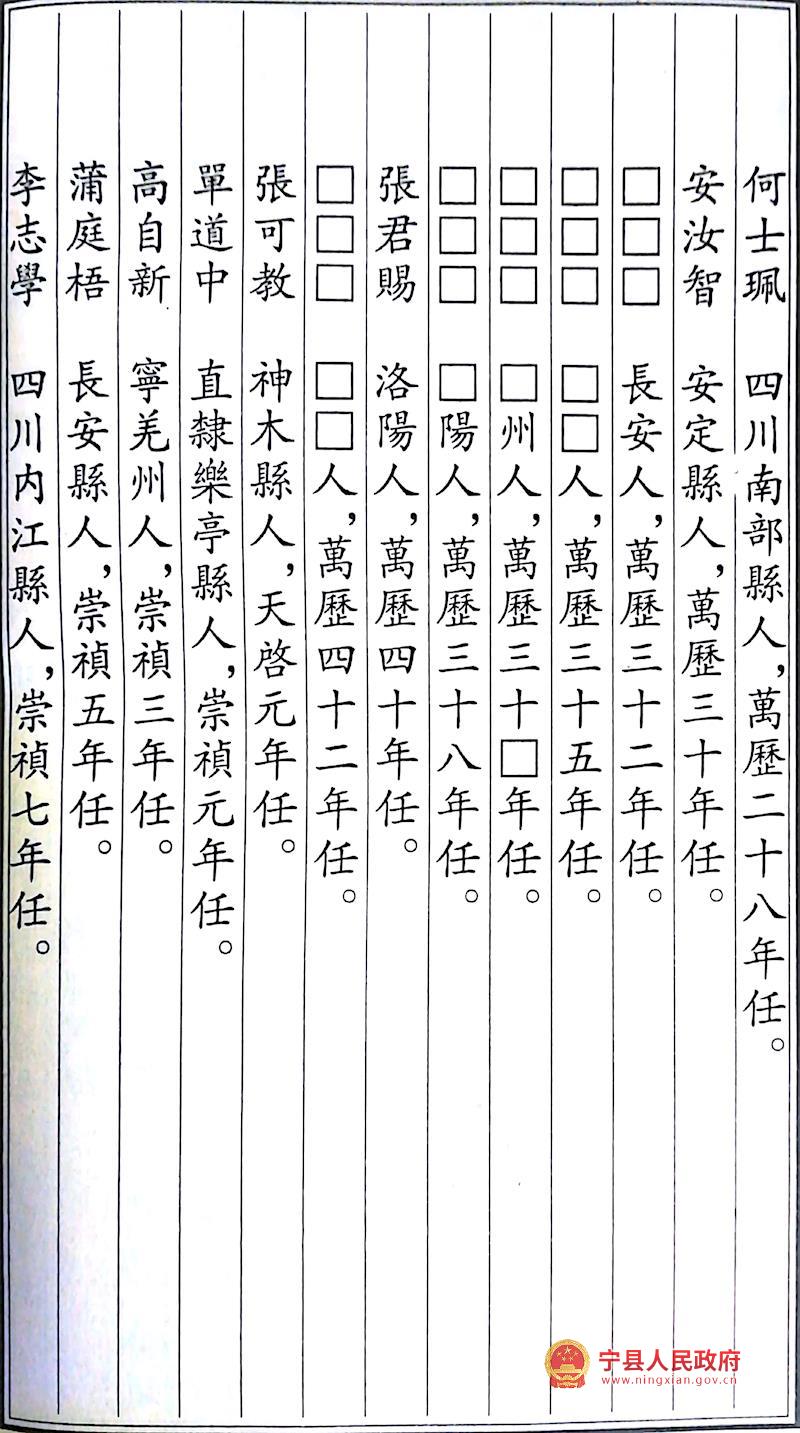 何士珮　四川南部縣人，萬歷二十八年任。
安汝智　安定縣人，萬歷三十年任。
□□□　長安人，萬歷三十二年任。
□□□　□□人，萬歷三十五年任。
□□□　□州人，萬歷三十□年任。
□□□　□陽人，萬歷三十八年任。
張君賜　洛陽人，萬歷四十年任。
□□□　□□人，萬歷四十二年任。
張可教　神木縣人，天啓元年任。
單道中　直隸樂亭縣人，崇禎元年任。
高自新　寧羌州人，崇禎三年任。
蒲庭梧　長安縣人，崇禎五年任。
李志學　四川内江縣人，崇禎七年任。
宁县人民政府
www.ningxian.gov.cn